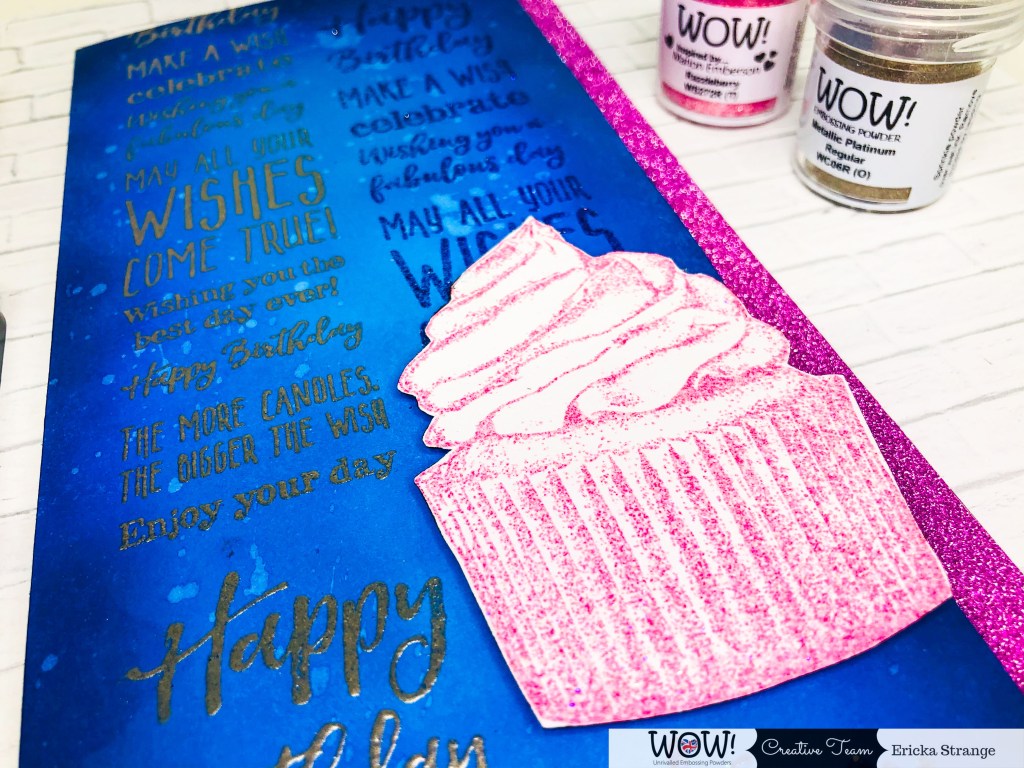 Birthday
MAKE A WISH
celebrate
Wishing you a
fabulous day
MAY ALL YOUR
WISHES
COME TRUE!
Wishing you the
best day ever!
Happy Birthday
THE MORE CANDLES,
THE BIGGER THE WISH
Enjoy your day
Happy
Happy
Birthday
MAKE A WISH
celebrate
Wishing you a
fabulous day
MAY ALL YOUR
WISHES
WOW!
Inspired by...
Marion Emberson
WOW!
EMBOSSING POWDER
Metallic Platinum
Regular
WC06R (O)
WOW!
Unrivalled Embossing Powders
Creative Team
Ericka Strange